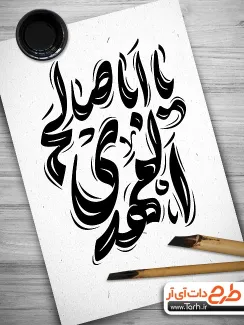 یا اباصالح
المهدی
طرح دات آی آر
www.Tarh.ir